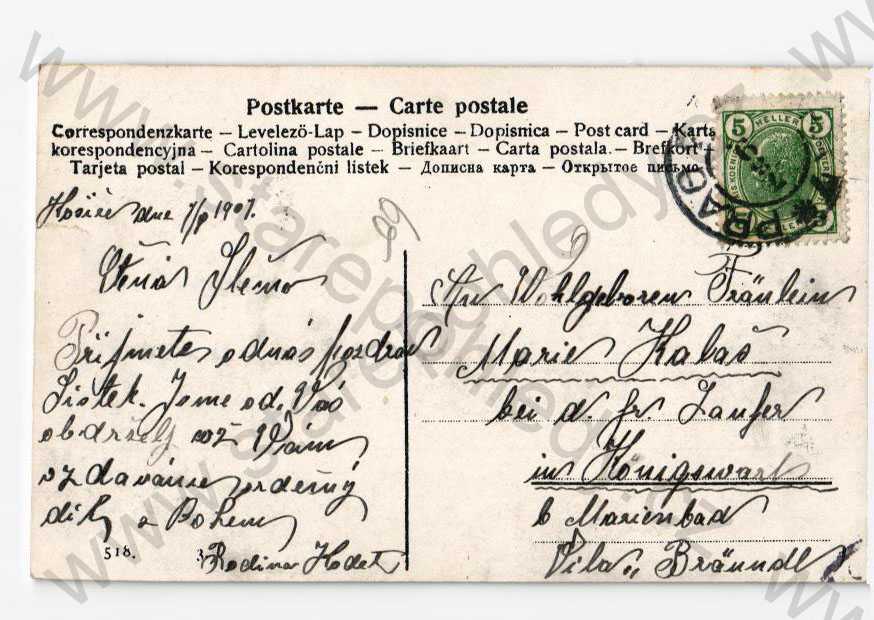 Postkarte — Carte postale
Correspondenzkarte – Levelezö-Lap – Dopisnice – Dopisnica – Post card – Karta
korespondencyjna – Cartolina postale – Briefkaart – Carta postala. – Brefkort –
Tarjeta postal – Korespondenční listek – Дописна карта – Открытое письмо
5 HELLER 5
PRAG
Košíře dne 7/9 1907.
60
Ctěná Slečno
Přijmete od nás pozdrav
Lístek. Jsme od Vás
obdrželj což Vám
vzdaváme srdečný
dík s Bohem
Rodina Hodek
518.
An Wohlgeboren Fräulein
Marie Kalaš
bei d. fr. Laufer
in Königswart
b Marienbad
Vila „ Bräundl
www.starepohledy.cz